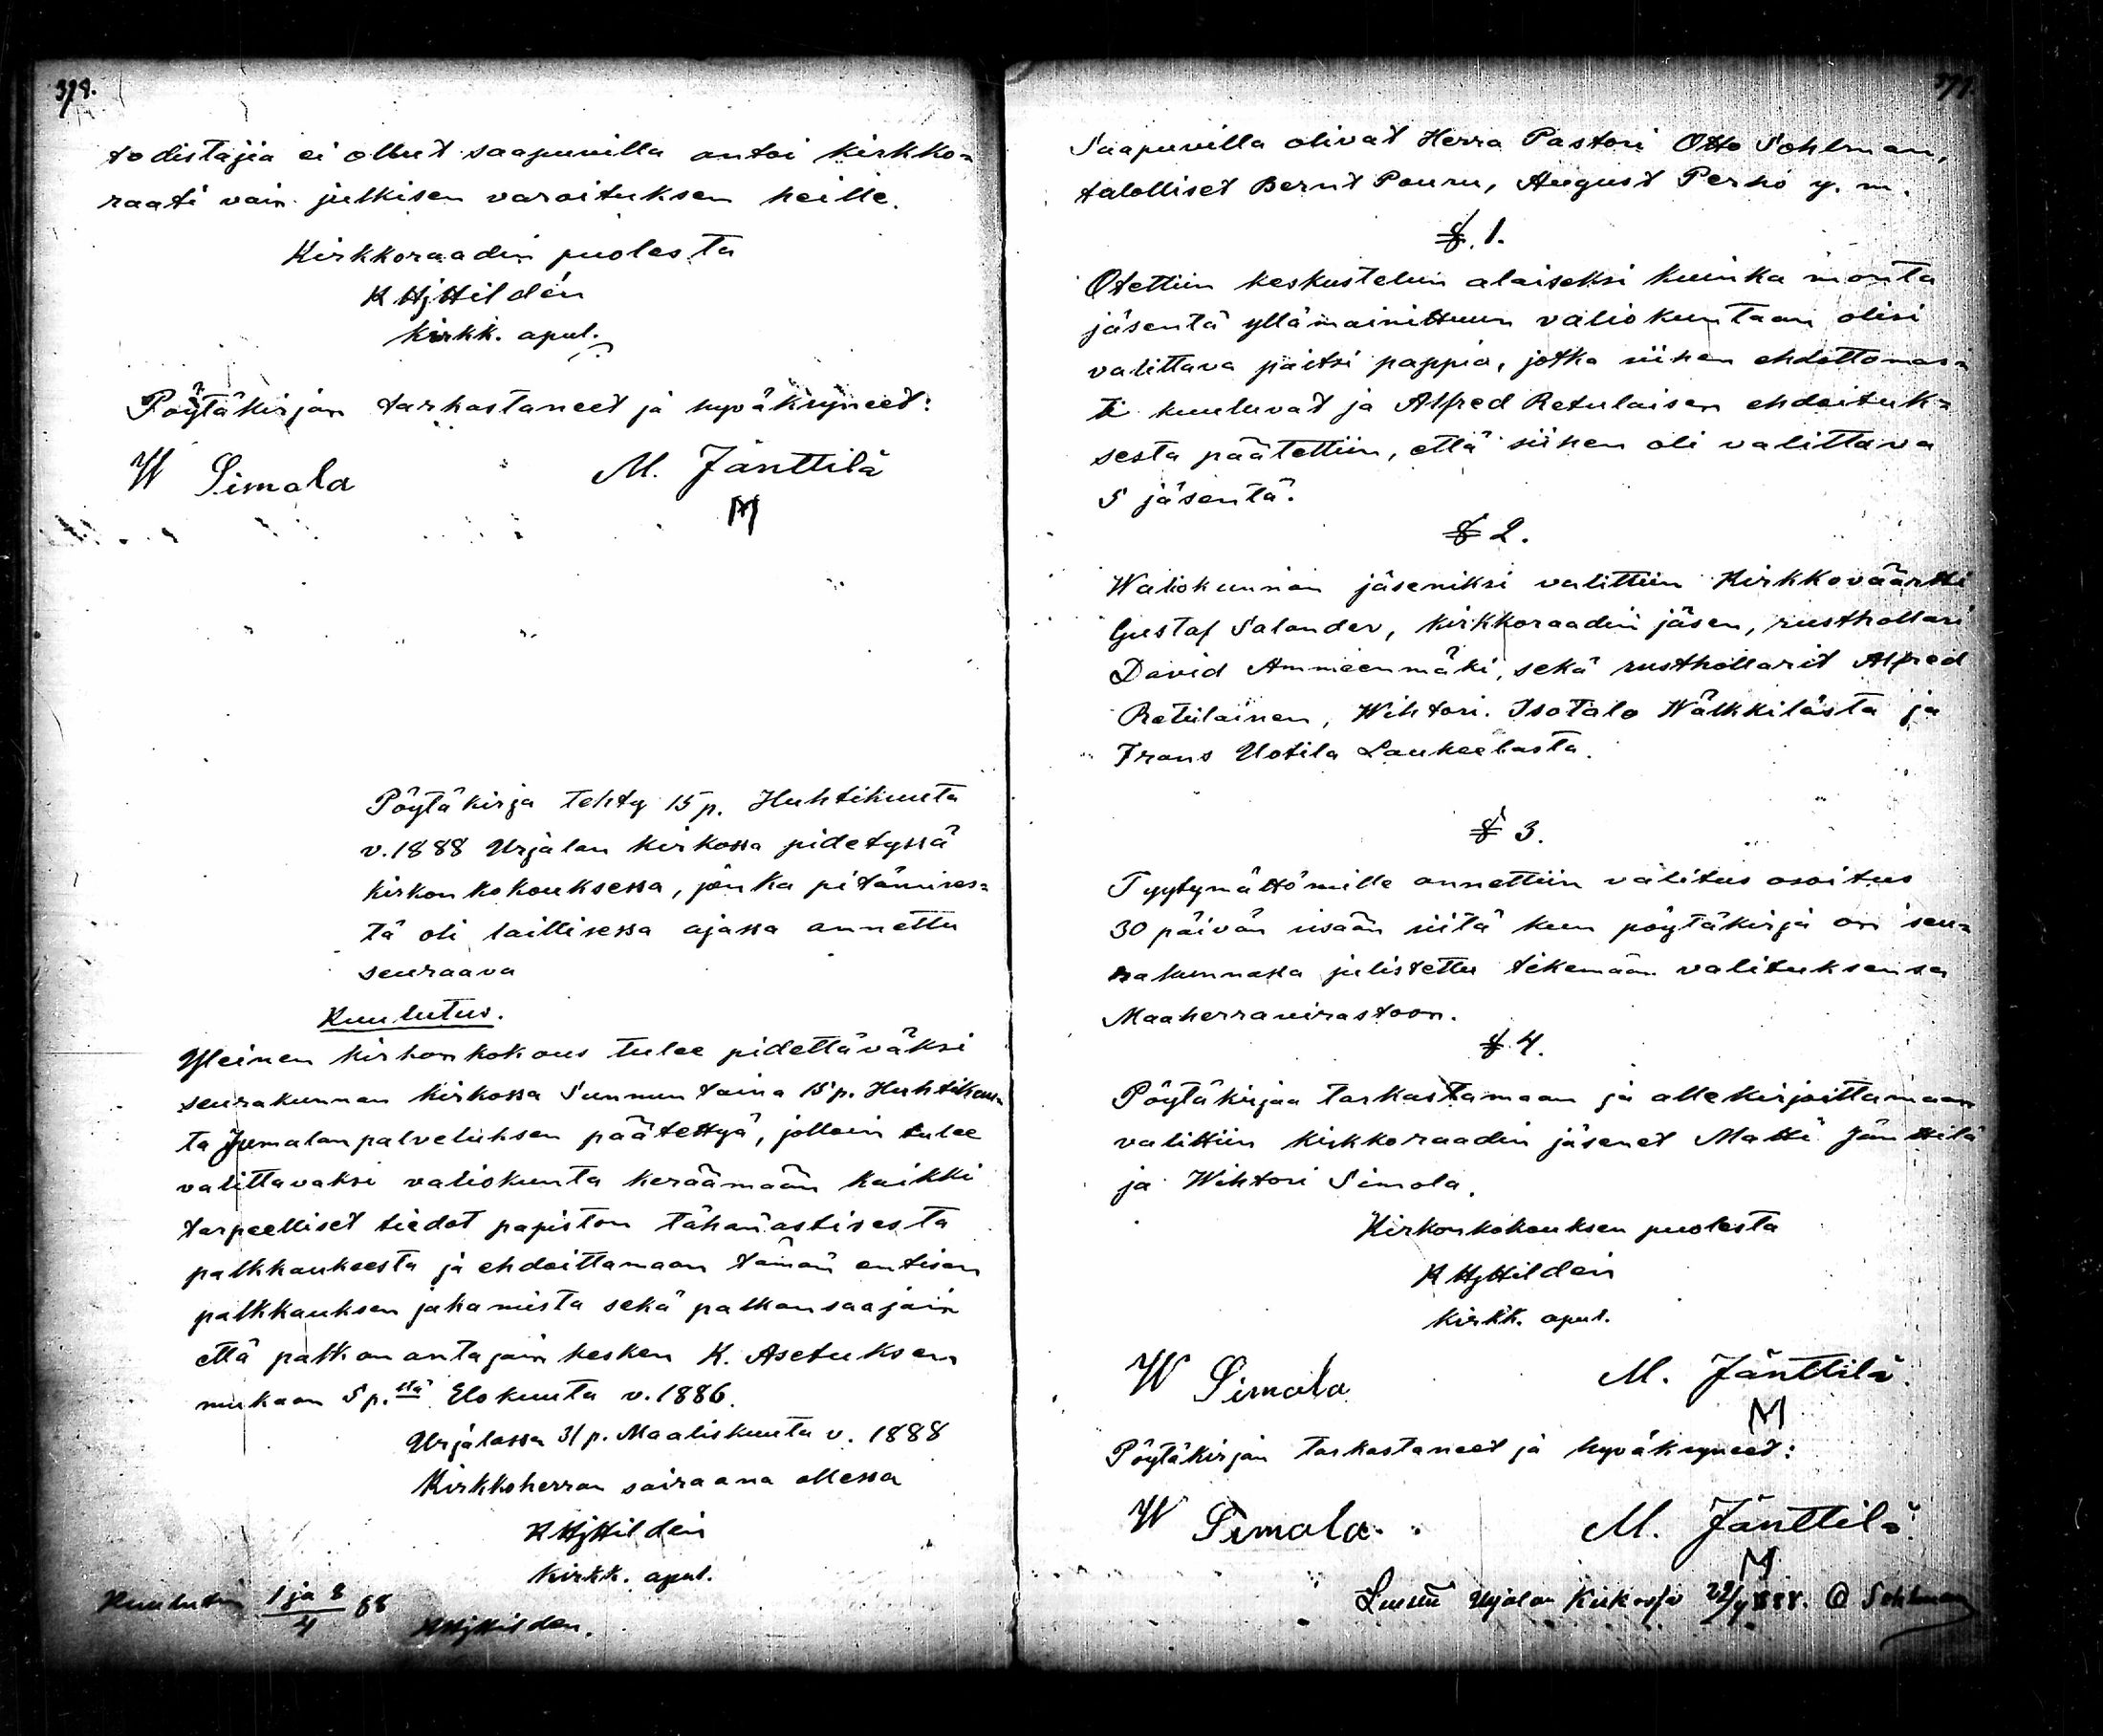 378.
todistajia ei ollut saapuvilla antoi kirkko=
raati vain julkisen varoituksen heille.
Kirkkoraadin puolesta
K Hj Hildén
kirkk. apul.
Pöytäkirjan tarkastaneet ja hyväksyneet:
W Simola M. Jänttilä
Pöytäkirja tehty 15 p. Huhtikuuta
v. 1888 Urjalan kirkossa pidetyssä
kirkonkokouksessa, jonka pitämises=
tä oli laillisessa ajassa annettu
seuraava
Kuulutus.
Yleinen kirkonkokous tulee pidettäväksi
seurakunnan kirkossa Sunnuntaina 15 p. Huhtikuu=
ta Jumalanpalveluksen päätettyä, jolloin tulee
valittavaksi valiokunta keräämään kaikki
tarpeelliset tiedot papiston tähänastisesta
palkkauksesta ja ehdoittamaan tämän entisen
palkkauksen jakamista sekä palkansaajain
että palkanantajain kesken K. Asetuksen
mukaan 5 p.stä Elokuuta v. 1886.
Urjalassa 31 p. Maaliskuuta v. 1888
Kirkkoherran sairaana ollessa
K Hj Hildén
kirkk. apul.
Kuulutettu 1 ja 8/4 88
K Hj Hilden.
Saapuvilla olivat Herra Pastori Otto Sohlman,
talolliset Bernt Pouru, August Perho y. m.
§. 1.
Otettiin keskustelun alaiseksi kuinka monta
jäsentä yllämainittuun valiokuntaan olisi
valittava paitsi pappia, jotka siihen ehdottomas=
ti kuuluvat ja Alfred Retulaisen ehdoituk=
sesta päätettiin, että siihen oli valittava
5 jäsentä.
§ 2.
Waliokunnan jäseniksi valittiin Kirkkoväärtti
Gustaf Salander, kirkkoraadin jäsen, rusthollari
David Ammeenmäki, sekä rusthollarit Alfred
Retulainen, Wihtori Isotalo Wälkkilästa ja
Frans Uotila Laukeelasta.
§ 3.
Tyytymättömille annettiin valitus osoitus
30 päivän sisään siitä kuin pöytäkirja on seu=
rakunnassa julistettu tekemään valituksensa
Maaherranvirastoon.
§ 4.
Pöytäkirjaa tarkastamaan ja allekirjoittamaan
valittiin kirkkoraadin jäsenet Matti Jänttilä
ja Wihtori Simola.
Kirkonkokouksen puolesta
K Hj Hildén
kirkk. apul.
W Simola M. Jänttilä.
Pöytäkirjan tarkastaneet ja hyväksyneet:
W Simola. M. Jänttilä.
Luettu Urjalan Kirkossa 22/4 888. O Sohlman